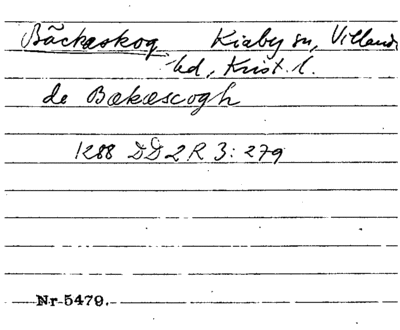 Bäckaskog Kiaby sn, Villands
hd, Krist. l.
de Bækæscogh
1288 DD 2 R 3: 279
Nr 5479.